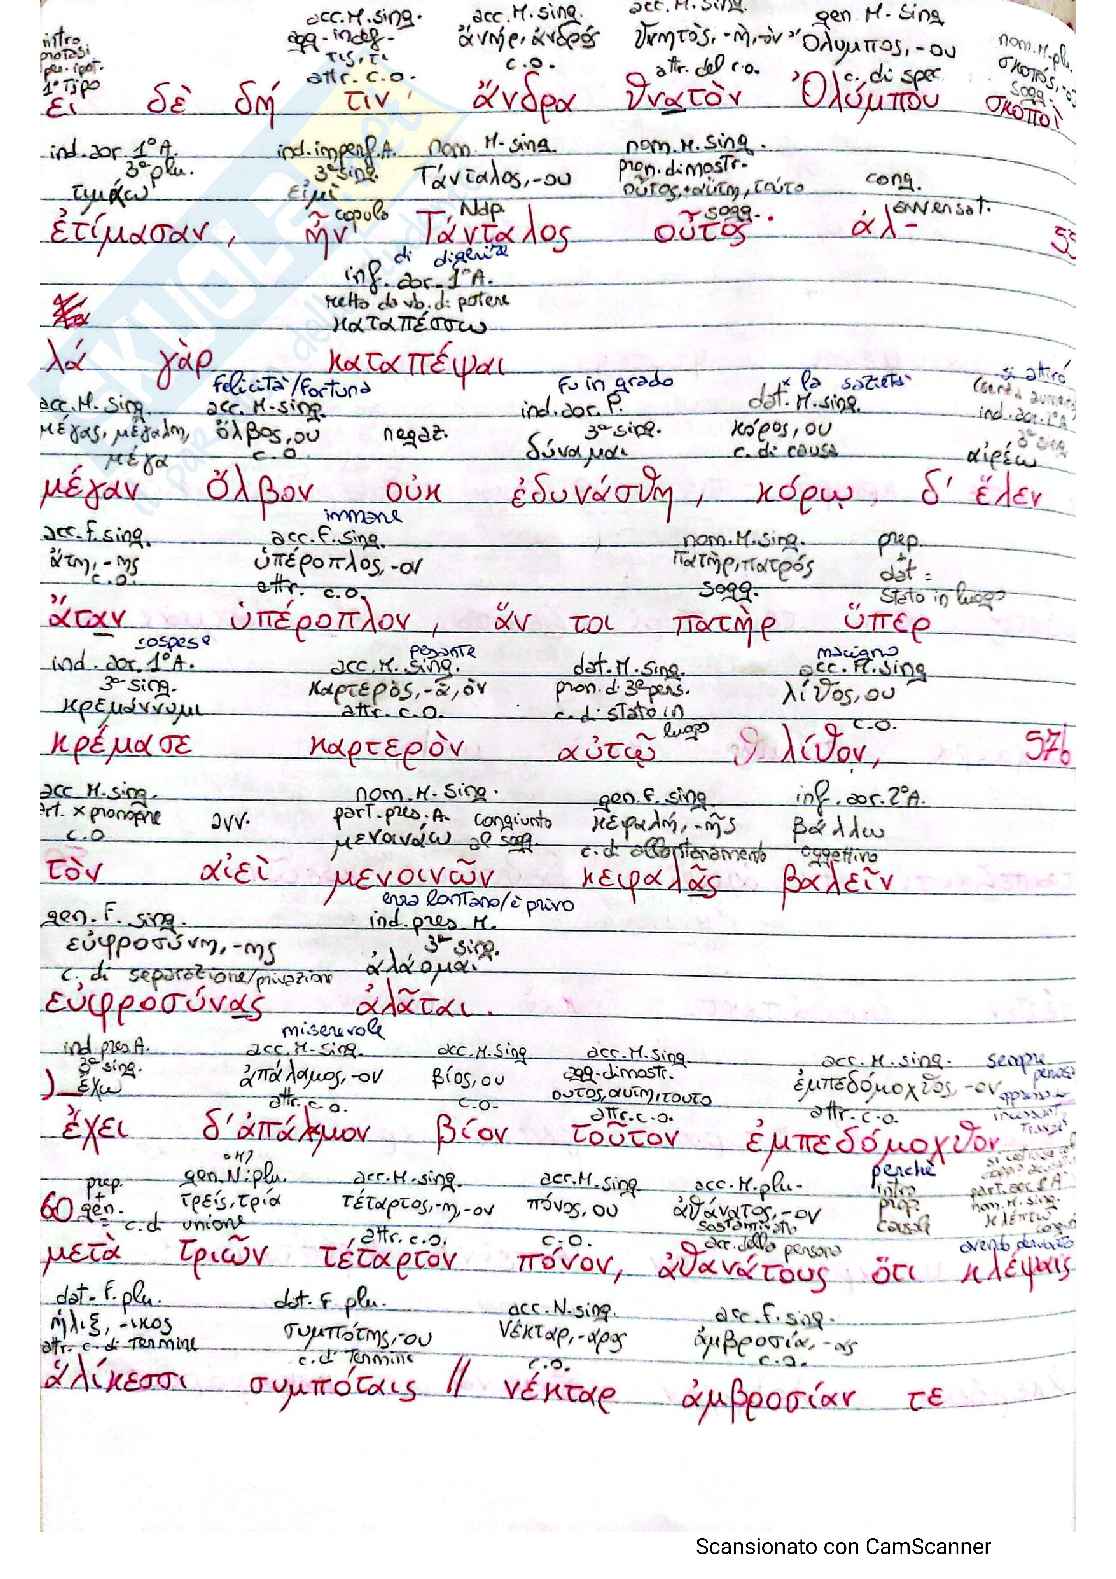 acc. M. sing. acc. M. sing. acc. M. sing. gen. M. sing
intro agg. indef. ἀνήρ, ἀνδρός θνητὸς, -ὴ, -ὸν Ὄλυμπος, -ου nom. M. plu.
protasi τις, τι c.o. attr. del c.o. c. di spec. σκοπός,
1° Tipo attr. c.o. sogg.
εἰ δὲ δή τιν' ἄνδρα θνατὸν Ὀλύμπου σκοποὶ
ind. aor. 1° A. ind. imperf. A. nom. M. sing. nom. M. sing.
3ª plu. 3ª sing. Τάνταλος, -ου pron. dimostr. cong.
τιμάω εἰμὶ οὗτος, αὕτη, τοῦτο
copula Ndp. sogg. avversat.
ἐτίμασαν, ἦν Τάνταλος οὗτος· ἀλ-
di digerire
inf. aor. 1° A.
retto da vb. di potere
καταπέσσω
λὰ γὰρ καταπέψαι
felicità/fortuna fu in grado la sazietà si attirò
acc. M. sing. acc. M. sing. ind. aor. P. dat. M. sing. ind. aor. 2° A
μέγας, μεγάλη, ὄλβος, ου negaz. 3ª sing. κόρος, ου 3ª sing
μέγα c.o. δύναμαι c. di causa αἱρέω
μέγαν ὄλβον οὐκ ἐδυνάσθη, κόρῳ δ' ἕλεν
immane
acc. F. sing. acc. F. sing. nom. M. sing. prep.
ἄτη, -ης ὑπέροπλος, -ον πατήρ, πατρός dat =
c.o. attr. c.o. sogg. stato in luogo
ἄταν ὑπέροπλον, ἅν τοι πατὴρ ὕπερ
sospese pesante macigno
ind. aor. 1° A. acc. M. sing. dat. M. sing. acc. M. sing
3ª sing. καρτερὸς, -ά, ὸν pron. di 3ª pers. λίθος, ου
κρεμάννυμι attr. c.o. c. di stato in luogo c.o.
κρέμασε καρτερὸν αὐτῷ λίθον, 57b
acc. M. sing. nom. M. sing. gen. F. sing inf. aor. 2° A.
art. x pronome avv. part. pres. A. congiunto κεφαλή, -ῆς βάλλω
c.o μενοινάω al sogg. c. di allontanamento oggettivo
τὸν αἰεὶ μενοινῶν κεφαλᾶς βαλεῖν
erra lontano/è privo
gen. F. sing. ind. pres. M.
εὐφροσύνη, -ης 3ª sing.
c. di separazione/privazione ἀλάομαι
εὐφροσύνας ἀλᾶται.
miserevole
ind pres A. acc. M. sing. acc. M. sing acc. M. sing. acc. M. sing. sempre
3ª sing. ἀπάλαμος, -ον βίος, ου agg. dimostr. ἐμπεδόμοχθος, -ον
ἔχω attr. c.o. c.o. ουτος, αυτη, τουτο attr. c.o.
attr. c.o.
ἔχει δ' ἀπάλαμον βίον τοῦτον ἐμπεδόμοχθον
prep. gen. N. plu. acc. M. sing. acc. M. sing. acc. M. plu. perché part. aor. 1° A
60 gen. τρεῖς, τρία τέταρτος, -η, -ον πόνος, ου ἀθάνατος, -ον intro nom. M. sing.
c. di unione attr. c.o. c.o. prop. κλέπτω
acc. della persona causale avendo derubato
μετὰ τριῶν τέταρτον πόνον, ἀθανάτους ὅτι κλέψαις
dat. F. plu. dat. F plu. acc. N. sing. acc. F. sing.
ἧλιξ, -ικος συμπότης, -ου νέκταρ, -αρος ἀμβροσία, -ας
attr. c. di Termine c. di Termine c.o. c.o.
ἁλίκεσσι συμπόταις // νέκταρ ἀμβροσίαν τε
Scansionato con CamScanner